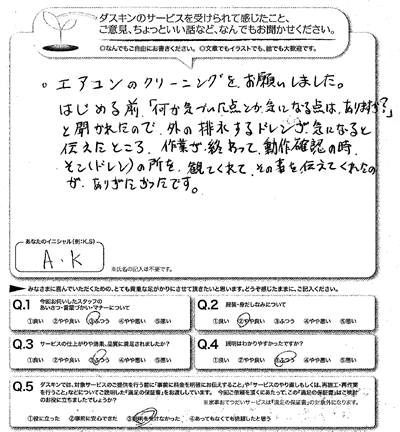 ダスキンのサービスを受けられて感じたこと、
ご意見、ちょっといい話など、なんでもお聞かせください。
◎なんでもご自由にお書きください。◎文章でもイラストでも、絵でも大歓迎です。
。エアコンのクリーニングをお願いしました。
はじめる前、「何か気づいた点とか気になる点は、ありますか？」
と聞かれたので、外の排水するドレンが気になると
伝えたところ、作業が終わって、動作確認の時、
そこ(ドレン)の所を、観てくれて、その事を伝えてくれたの
が、ありがたかったです。
あなたのイニシャル(例:K.S)
A.K
※氏名の記入は不要です。
みなさまに喜んでいただくための、とても貴重な足がかりにさせて頂きたいと思います。どうぞ感じたままに、ご記入ください。
Q.1 今回お伺いしたスタッフの
あいさつ・言葉づかい・マナーについて
①良い ②やや良い ③ふつう ④やや悪い ⑤悪い
Q.2 服装・身だしなみについて
①良い ②やや良い ③ふつう ④やや悪い ⑤悪い
Q.3 サービスの仕上がりや効果、品質に満足されましたか？
①良い ②やや良い ③ふつう ④やや悪い ⑤悪い
Q.4 説明はわかりやすかったですか？
①良い ②やや良い ③ふつう ④やや悪い ⑤悪い
Q.5 ダスキンでは、対象サービスのご提供を行う前に「事前に料金を明確にお伝えすること」や「サービスのやり直しもしくは、再施工・再作業
を行うこと」などについてご説明した「満足の保証書」をお渡ししています。 今回ご依頼を頂くにあたって、この「満足の保証書」はご検討
のお役に立ちましたでしょうか？
※家事おてつだいサービスは「満足の保証書」の対象外になります。
①役に立った ②事前に安心できた ③説明を受けなかった ④あってもなくても依頼したと思う